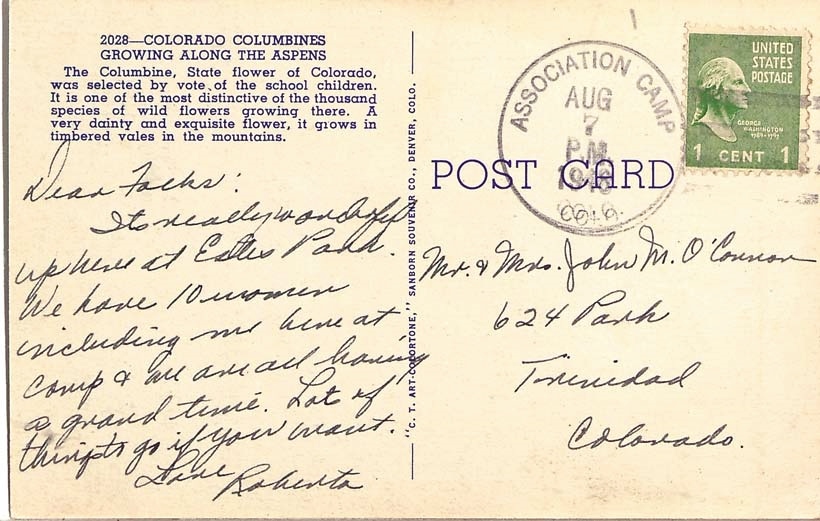 2028—COLORADO COLUMBINES
GROWING ALONG THE ASPENS
The Columbine, State flower of Colorado,
was selected by vote of the school children.
It is one of the most distinctive of the thousand
species of wild flowers growing there. A
very dainty and exquisite flower, it grows in
timbered vales in the mountains.
Dear Folks:
Its really wonderful
up here at Estes Park.
We have 10 women
including me here at
camp & we are all having
a grand time. Lots of
things to go if you want.
Love Roberta
"C. T. ART-COLORTONE," SANBORN SOUVENIR CO., DENVER, COLO.
POST CARD
ASSOCIATION CAMP
AUG
7
P.M.
COLO.
UNITED
STATES
POSTAGE
GEORGE
WASHINGTON
1789-1797
1 CENT 1
Mr. & Mrs. John M. O'Connor
624 Park
Trinidad
Colorado.